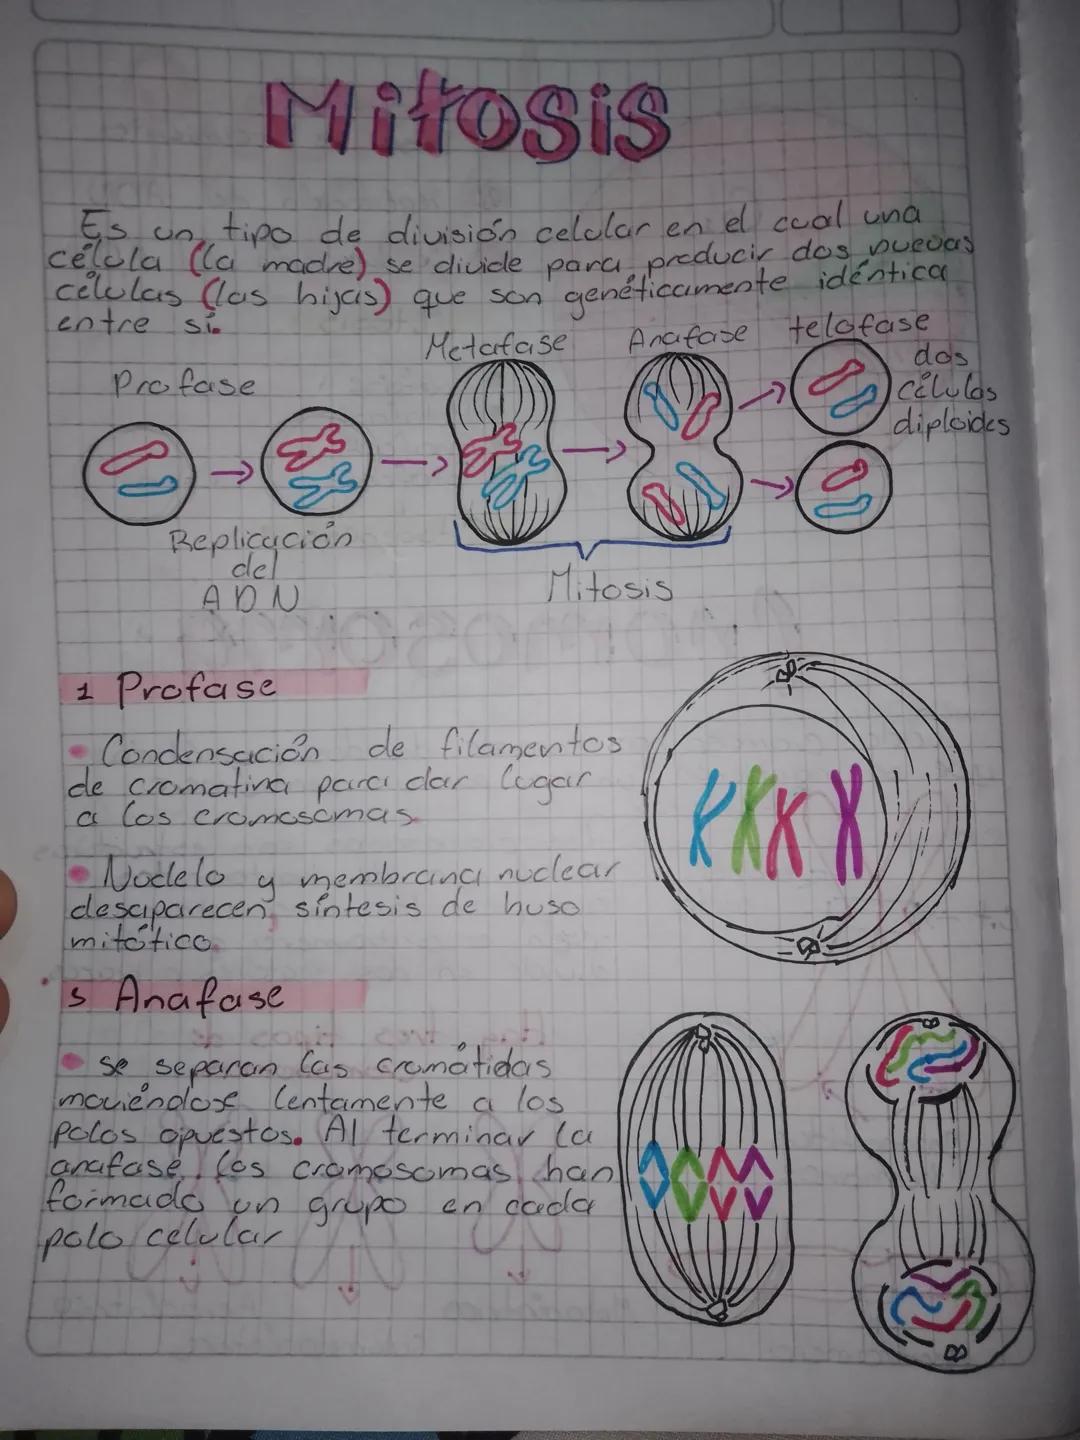 Mitosis
Es un tipo de división celular en el cual una
célula (la madre) se divide para producir dos nuevas
células (las hijas) que son genéticamente idéntica
entre sí.
Profase
Metafase
Anafase
telofase
dos
células
diploides
Replicación
del
ADN
Mitosis
1 Profase
• Condensación de filamentos
de cromatina para dar lugar
a los cromosomas
• Nuclelo y membrana nuclear
desaparecen, síntesis de huso
mitótico.
5 Anafase
• se separan las cromátidas
moviéndose lentamente a los
polos opuestos. Al terminar la
anafase, los cromosomas han
formado un grupo en cada
polo celular